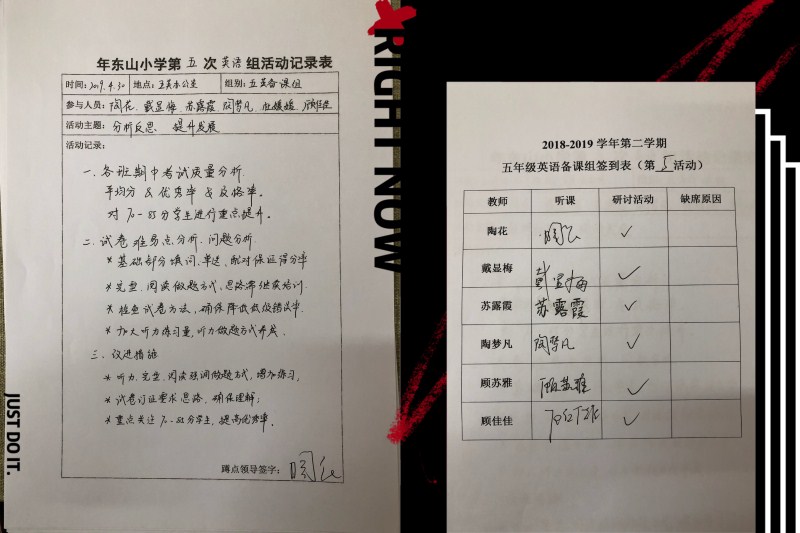 年东山小学第 五 次 英语 组活动记录表
时间: 2019.4.30 地点: 五英办公室 组别: 五英备课组
参与人员: 陶花、戴显梅 苏露霞 陶梦凡
活动主题: 分析反思、提升发展
活动记录:
一. 各班期中考试质量分析.
平均分 & 优秀率 & 及格率.
对70-85分学生进行重点提升.
二. 试卷难易点分析. 问题分析.
* 基础部分填词、单选、配对保证得分率
* 完型、阅读做题方式、思路需继续培训.
* 检查试卷方法, 确保降低低级错误率.
* 加大听力练习量, 听力做题方式养成.
三. 改进措施
* 听力、完型、阅读强调做题方式, 增加练习;
* 试卷订正要求思路, 确保理解;
* 重点关注70-85分学生, 提高优秀率.
蹲点领导签字:
JUST DO IT.
RIGHT NOW
2018-2019 学年第二学期
五年级英语备课组签到表（第 5 活动）
教师 听课 研讨活动 缺席原因
陶花 ✓
戴显梅 戴显梅 ✓
苏露霞 苏露霞 ✓
陶梦凡 陶梦凡 ✓
顾苏雅 顾苏雅 ✓
顾佳佳 ✓